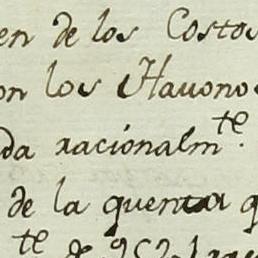 en de los Costos
on los Hauono
da racionalmte.
de la quenta q
te de